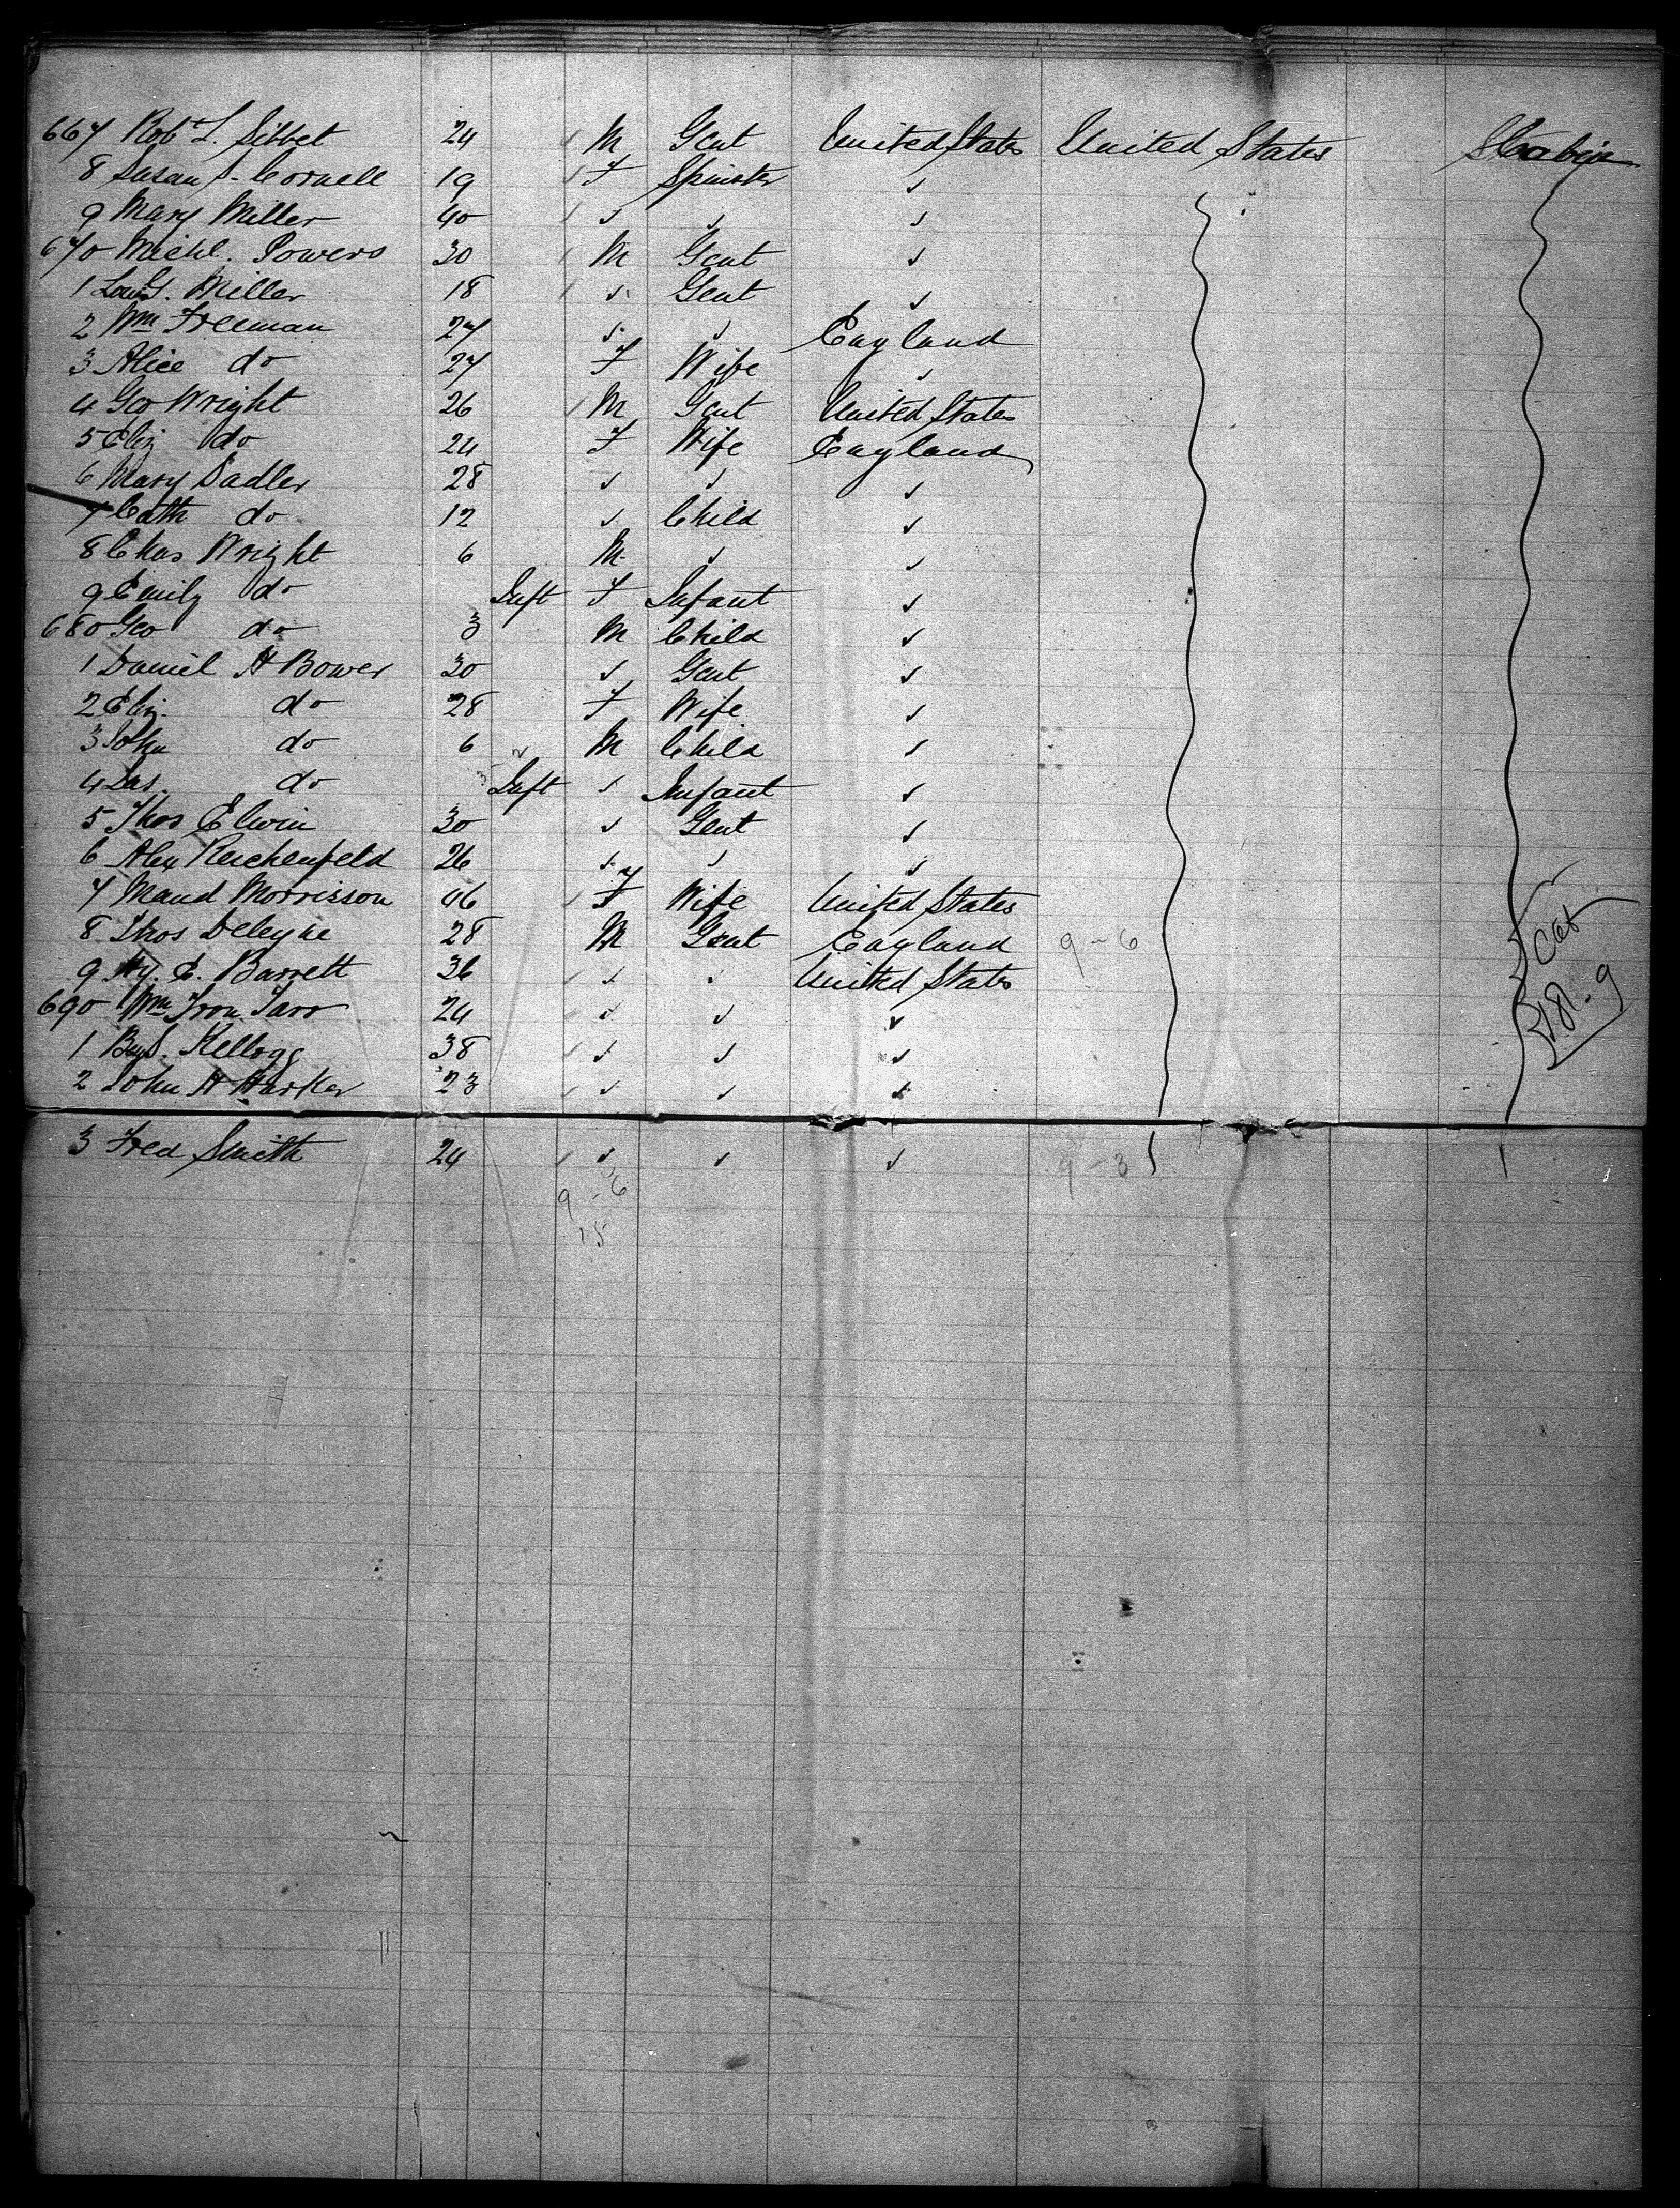 667 Robt L. Sibbet 24 M Gent United States United States Cabin
8 Susan S. Cornell 19 F Spinster ✓
9 Mary Miller 40 ✓ ✓ ✓
670 Michl. Powers 30 M Gent ✓
1 G. Miller 18 ✓ Gent ✓
2 Wm Freeman 27 ✓ ✓ England
3 Alice do 27 F Wife ✓
4 Geo Wright 26 M Gent United States
5 Eliz do 24 F Wife England
6 Mary Sadler 28 ✓ ✓ ✓
7 Cath do 12 ✓ Child ✓
8 Chas Wright 6 M ✓ ✓
9 Emily do Inft F Infant ✓
680 Geo do 3 M Child ✓
1 Daniel H Bower 30 ✓ Gent ✓
2 Eliz. do 28 F Wife ✓
3 John do 6 M Child ✓
4 Jas. do Inft ✓ Infant ✓
5 Thos Elwin 30 ✓ Gent ✓
6 Alex Reichenfeld 26 ✓ ✓ ✓
7 Maud Morrisson 46 F Wife United States
8 Thos 28 M Gent England 9-6
9 Hy. E. Barrett 36 ✓ ✓ United States
690 Wm 24 ✓ ✓ ✓
1 Kellogg 38 ✓ ✓ ✓
2 John H Harker 23 ✓ ✓ ✓
3 Fred Smith 24 ✓ ✓ ✓ 9-3
9-6
15